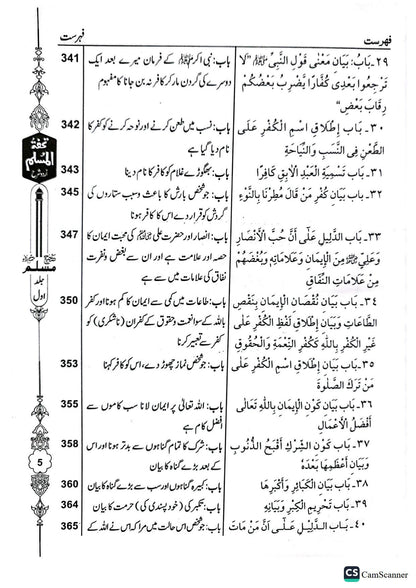 فهرست
فهرست
٢٩۔بَابُ: بَيَانِ مَعْنَى قَوْلِ النَّبِيِّ ﷺ "لَا
تَرْجِعُوا بَعْدِي كُفَّارًا يَضْرِبُ بَعْضُكُمْ
رِقَابَ بَعْضٍ"
باب: نبی اکرم ﷺ کے فرمان میرے بعد ایک
دوسرے کی گردن مار کر کافر نہ بن جانا کا مفہوم
341
٣٠۔ بَاب إِطْلَاقِ اسْمِ الْكُفْرِ عَلَى
الطَّعْنِ فِي النَّسَبِ وَالنِّيَاحَةِ
باب: نسب میں طعن کرنے اور نوحہ کرنے کو کفر کا
نام دیا گیا ہے
342
٣١۔ بَاب تَسْمِيَةِ الْعَبْدِ الْآبِقِ كَافِرًا
باب: بھگوڑے غلام کو کافر کا نام دینا
343
٣٢۔ باب بَيَانِ كُفْرِ مَنْ قَالَ مُطِرْنَا بِالنَّوْءِ
باب: جو شخص بارش کا باعث وسبب ستاروں کی
گردش کو قرار دے اس کا کافر ہونا
345
٣٣۔ بَاب الدَّلِيلِ عَلَى أَنَّ حُبَّ الْأَنْصَارِ
وَعَلِيٍّ مِنَ الْإِيمَانِ وَعَلَامَاتِهِ وَبُغْضُهُمْ
مِنْ عَلَامَاتِ النِّفَاقِ
باب: انصار اور حضرت علی کی محبت ایمان کا
حصہ اور علامت ہے اور ان سے بغض ونفرت
نفاق کی علامات میں سے ہے
347
٣٤۔ بَاب بَيَانِ نُقْصَانِ الْإِيمَانِ بِنَقْصِ
الطَّاعَاتِ وَبَيَانِ إِطْلَاقِ لَفْظِ الْكُفْرِ عَلَى
غَيْرِ الْكُفْرِ بِاللَّهِ كَكُفْرِ النِّعْمَةِ وَالْحُقُوقِ
باب: طاعات میں کمی سے ایمان کا کم ہونا اور کفر
باللہ کے سوا نعمت وحقوق کے کفران (ناشکری) کو
کفر سے تعبیر کرنا
350
٣٥۔ بَاب بَيَانِ إِطْلَاقِ اسْمِ الْكُفْرِ عَلَى
مَنْ تَرَكَ الصَّلٰوةَ
باب: جو شخص نماز چھوڑ دے، اس کو کافر کہنا
353
٣٦۔ بَاب بَيَانِ كَوْنِ الْإِيمَانِ بِاللَّهِ تَعَالَى
أَفْضَلُ الْأَعْمَالِ
باب: اللہ تعالیٰ پر ایمان لانا سب کاموں سے
افضل کام ہے
355
٣٧۔ بَاب كَوْنِ الشِّرْكِ أَقْبَحَ الذُّنُوبِ
وَبَيَانِ أَعْظَمِهَا بَعْدَهُ
باب: شرک کا تمام گناہوں سے بدتر ہونا اور اس
کے بعد بڑے گناہ کا بیان
358
٣٨۔ بَاب بَيَانِ الْكَبَائِرِ وَأَكْبَرِهَا
باب: کبیرہ گناہوں اور سب سے بڑے گناہ کا بیان
360
٣٩۔ بَاب تَحْرِيمِ الْكِبْرِ وَبَيَانِهِ
باب: تکبر کی (خود پسندی کی) حرمت کا بیان
364
٤٠۔ بَاب الدَّلِيلِ عَلَى أَنَّ مَنْ مَاتَ
باب: جو شخص اس حالت میں مرا کہ اس نے اللہ کے
365
تحفۃ
المسلم
مسلم
جلد
اول
5
CS CamScanner